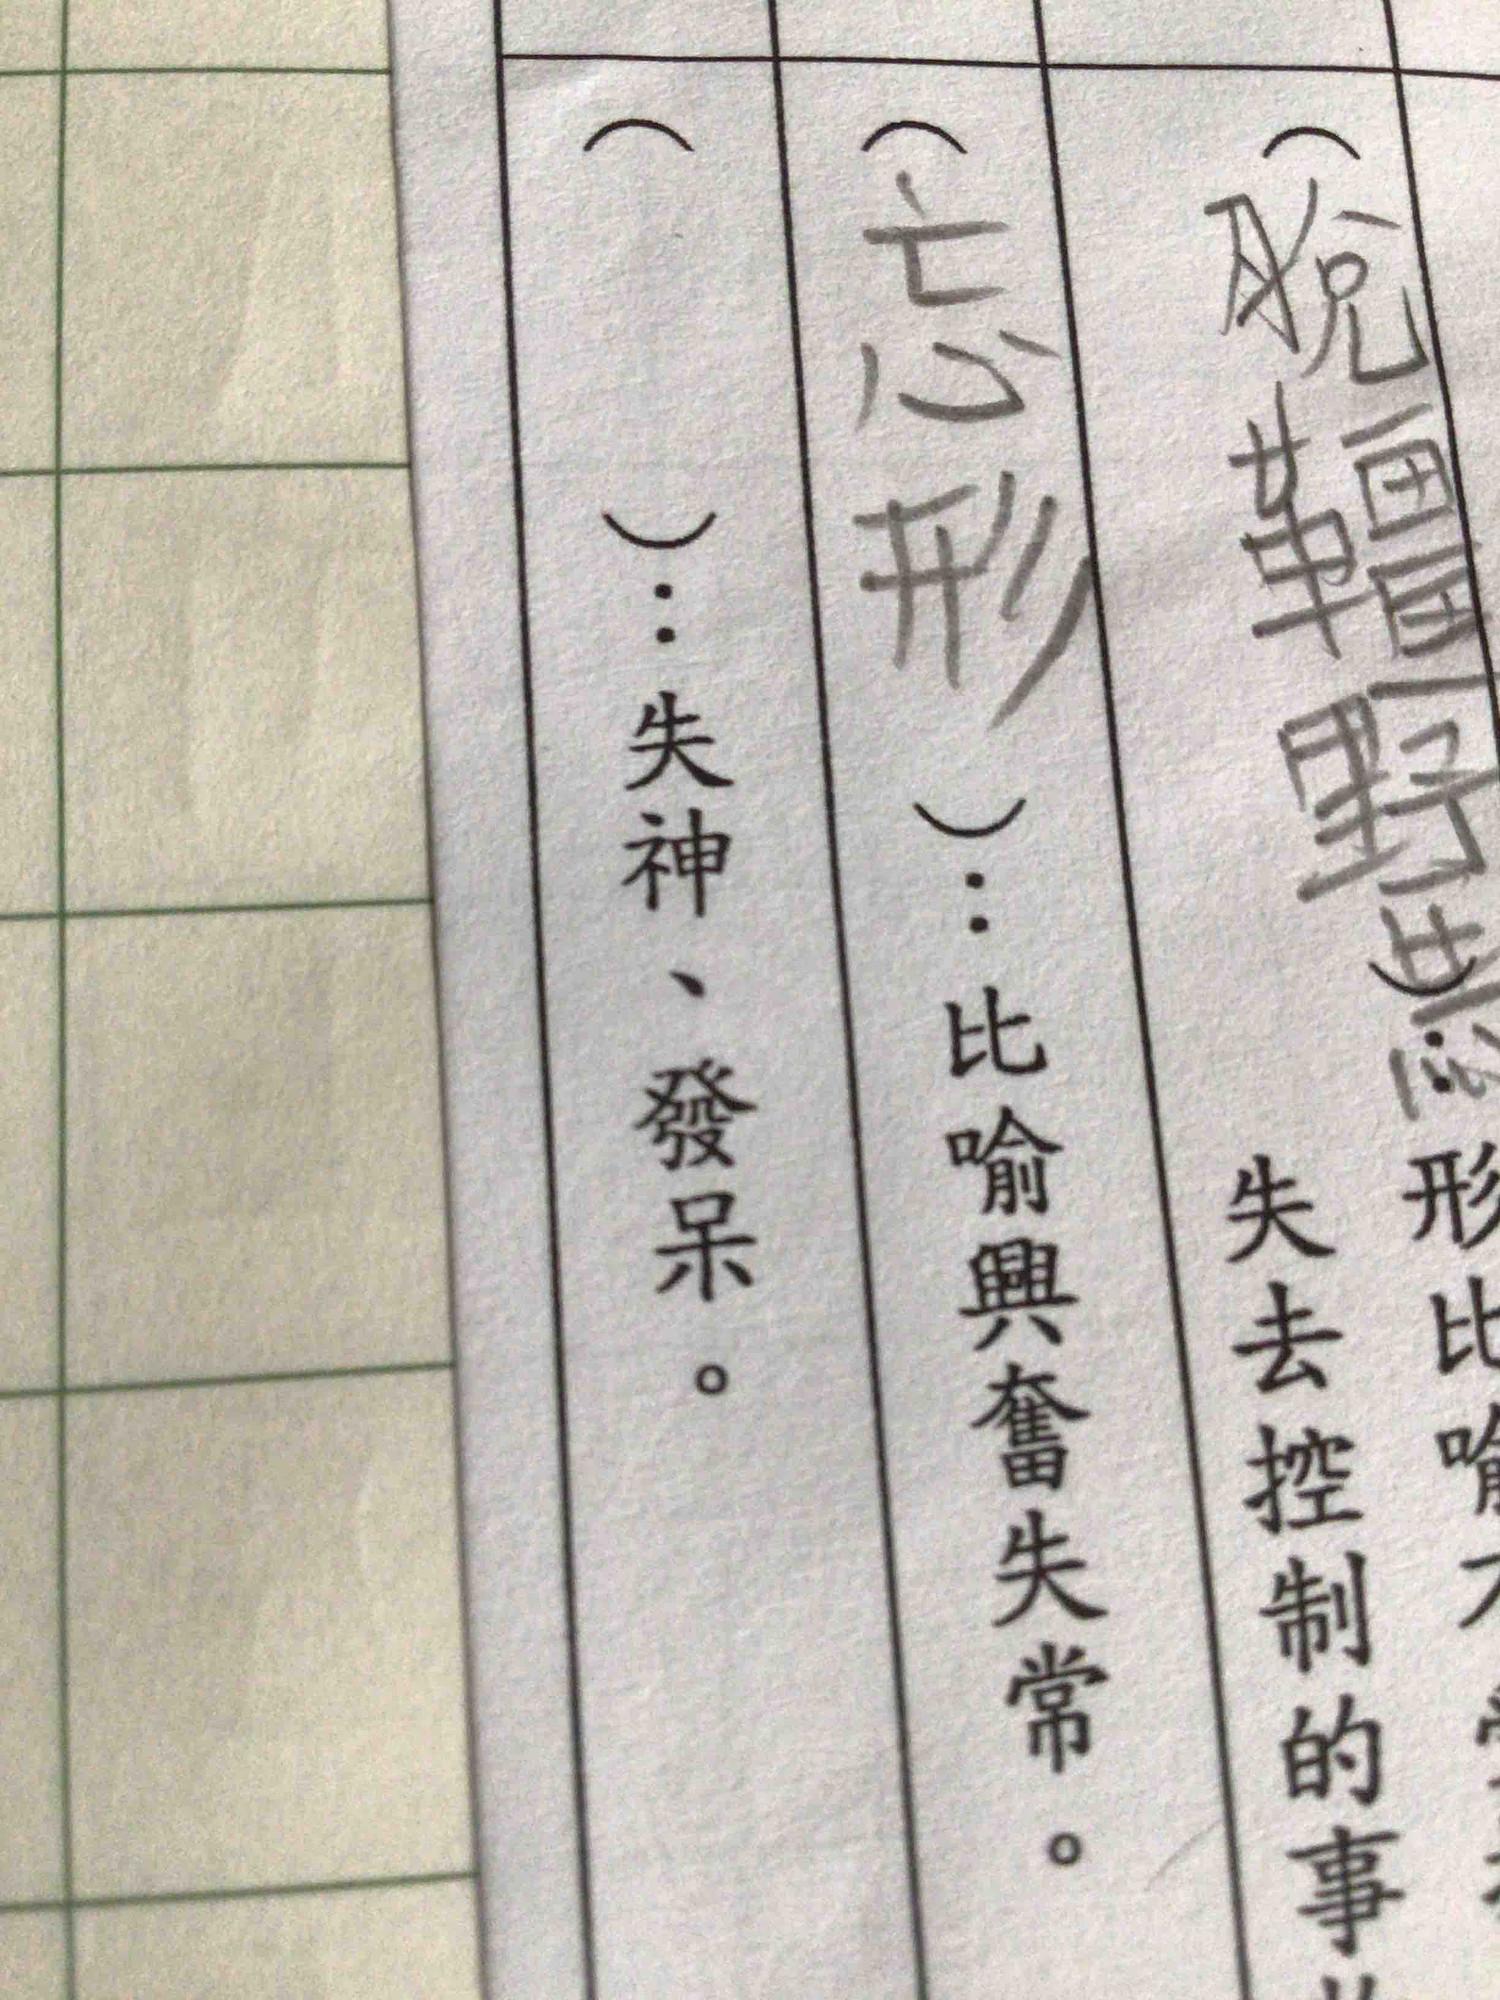 形比喻不
(脫韁野馬)：失去控制的事
(忘形)：比喻興奮失常。
(　　)：失神、發呆。